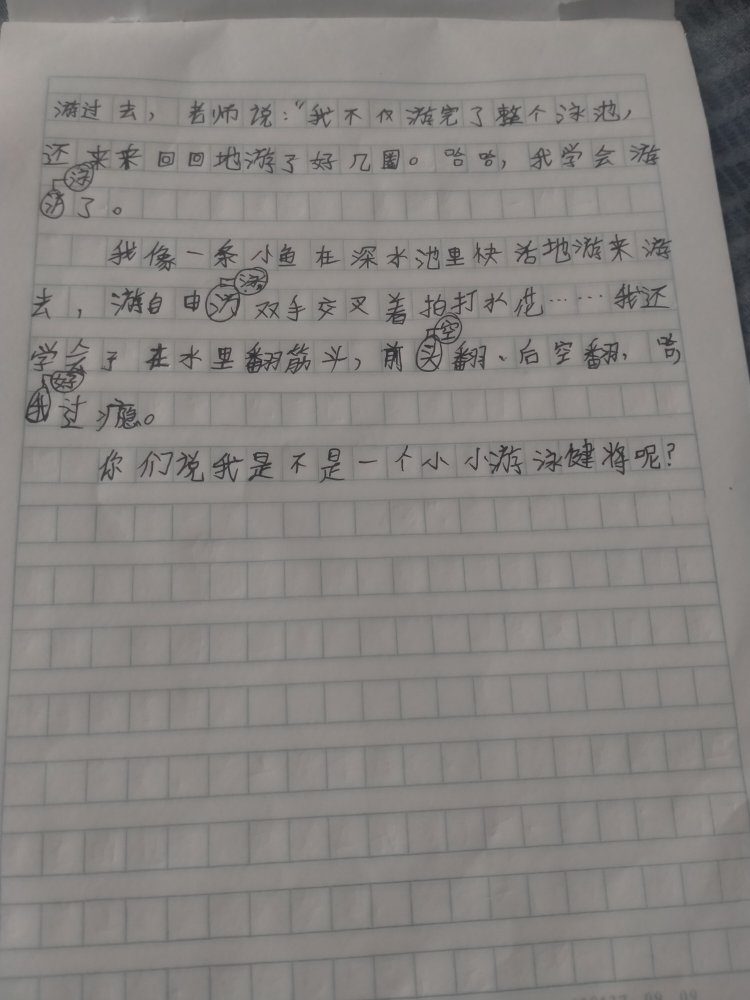 游过去，老师说：“我不仅游完了整个泳池，
还来来回回地游了好几圈。哈哈，我学会游
泳了。
我像一条小鱼在深水池里快活地游来游
去，游自由泳双手交叉着拍打水花……我还
学会了在水里翻筋斗，前空翻、后空翻，哈
好过瘾。
你们说我是不是一个小小游泳健将呢？